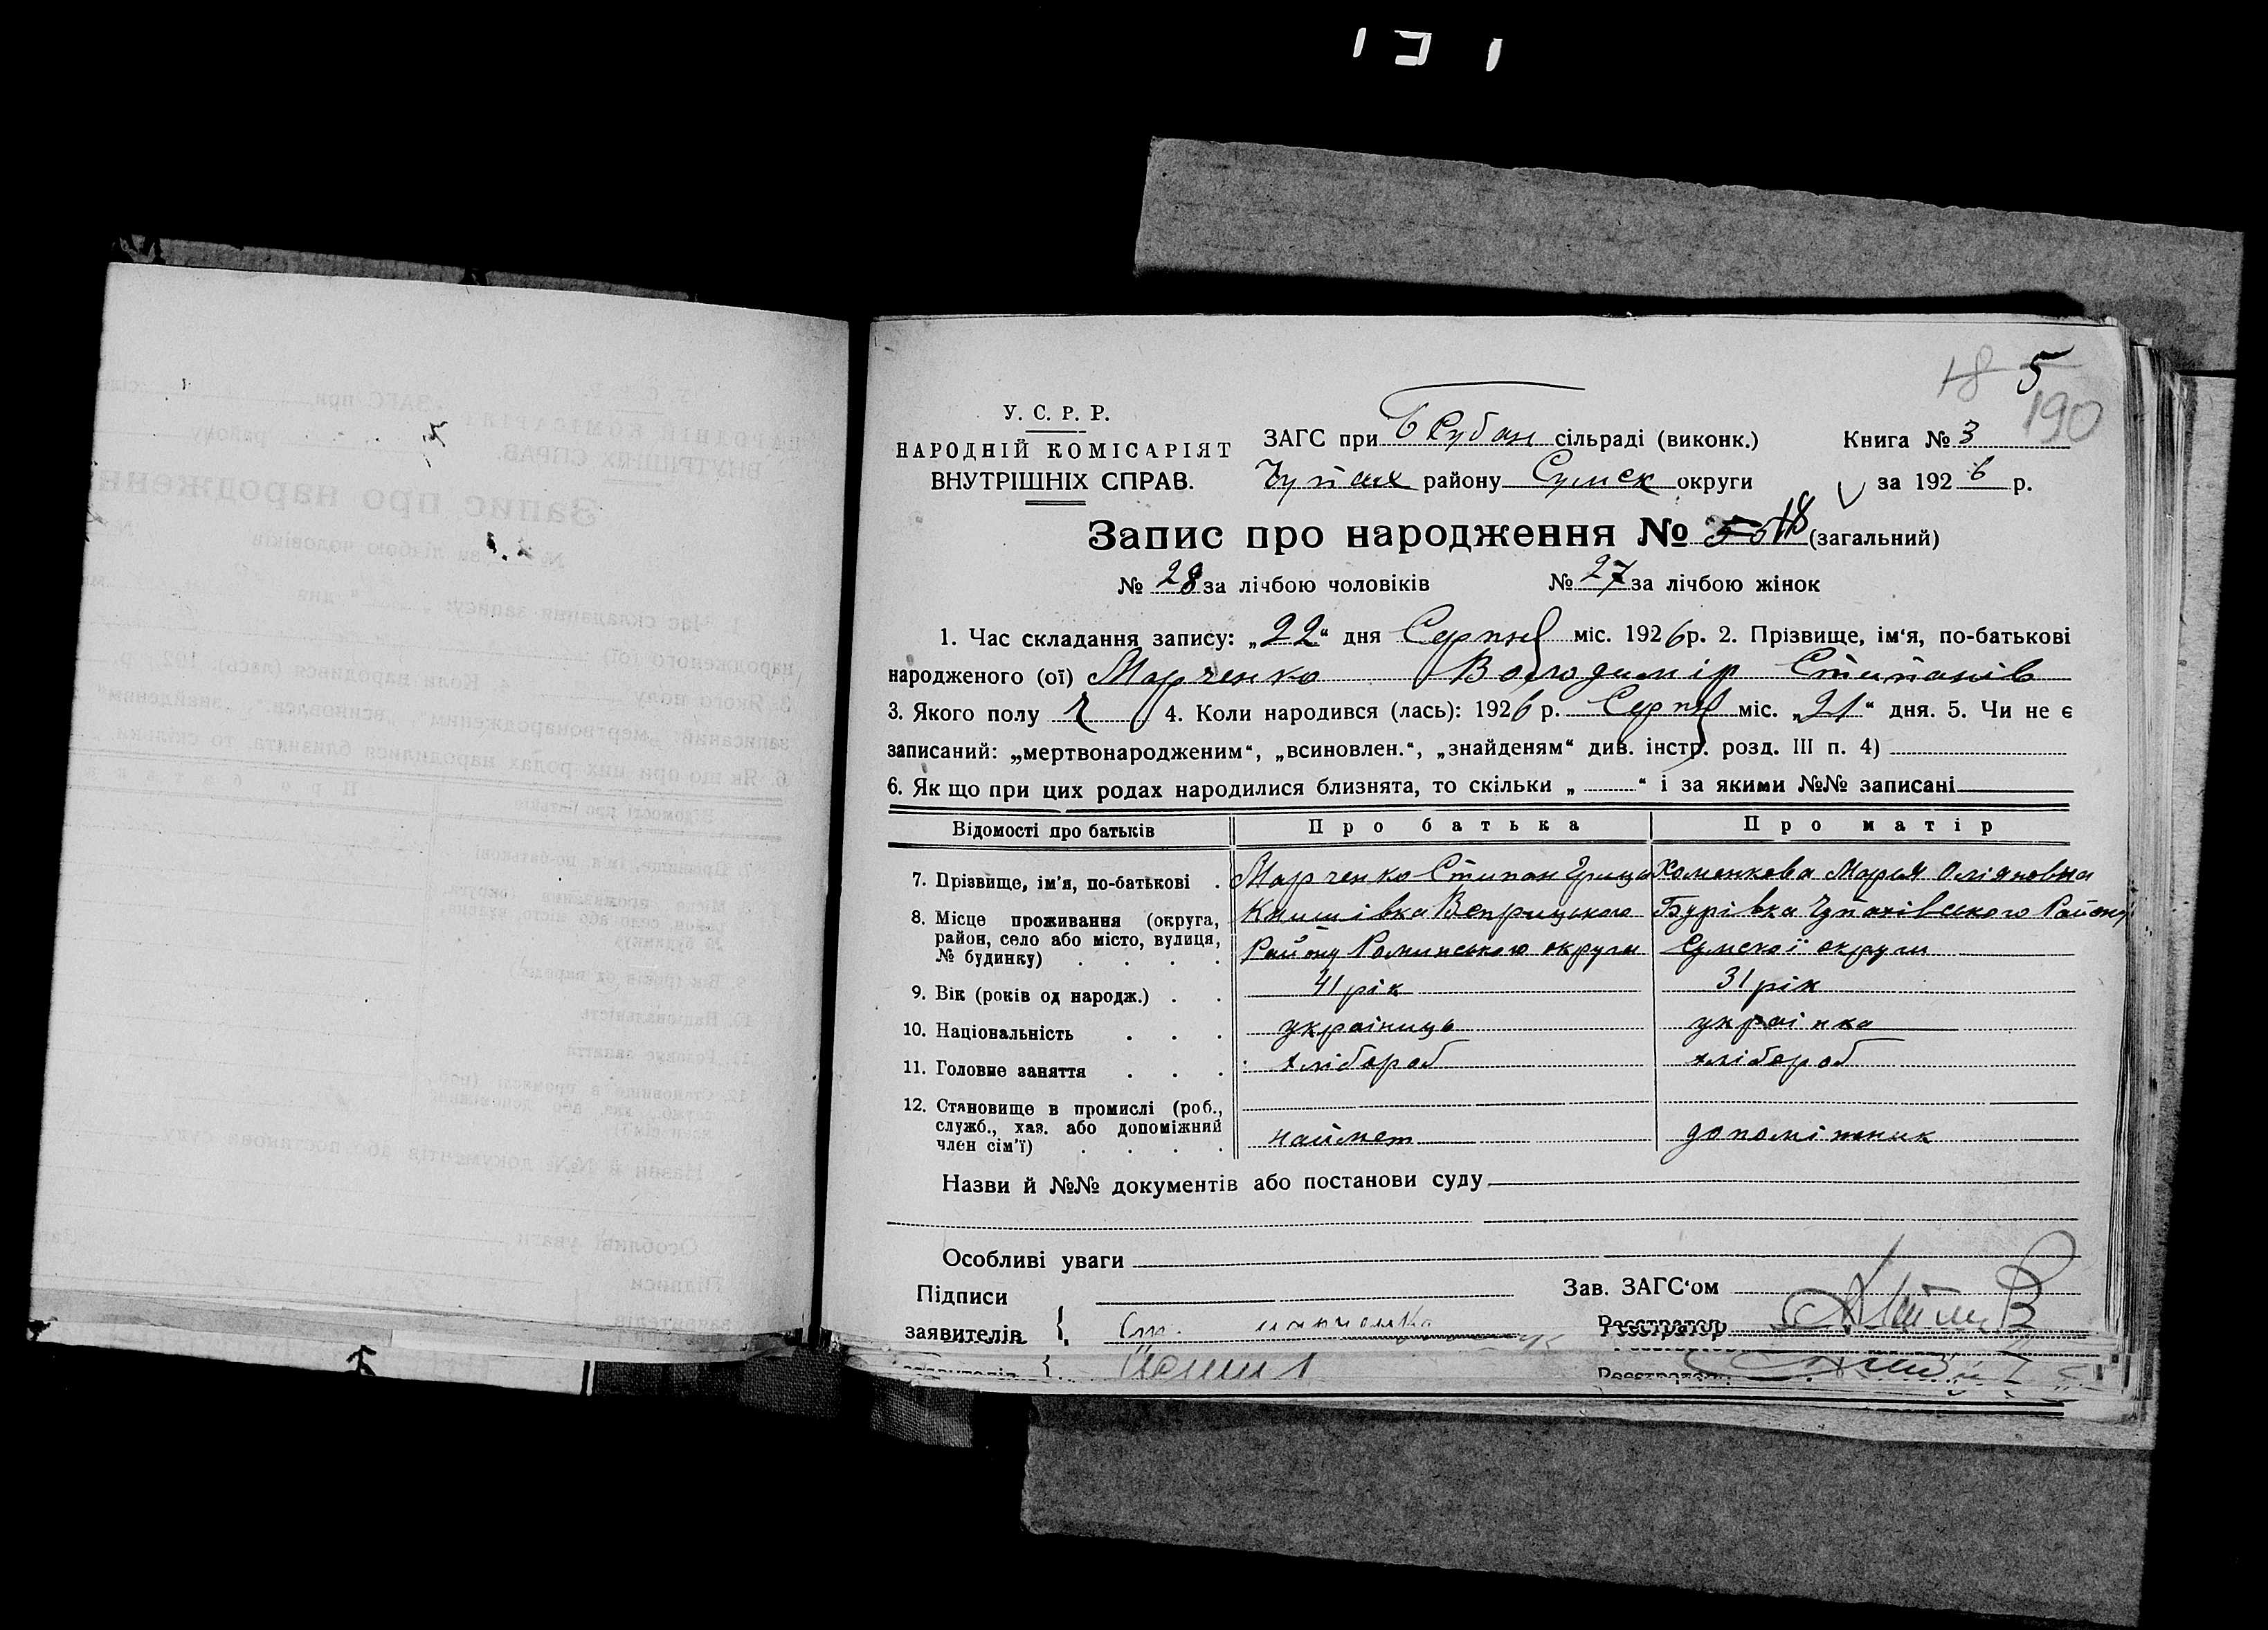 18 5
190
У. С. Р. Р.
НАРОДНІЙ КОМІСАРІЯТ
ВНУТРІШНІХ СПРАВ.
ЗАГС при Б Рубан сільраді (виконк.) Книга № 3
Чупах району Сумск округи за 1926 р.
Запис про народження № 18 (загальний)
№ 28 за лічбою чоловіків № 27 за лічбою жінок
1. Час складання запису: „22“ дня Серпня міс. 1926 р. 2. Прізвище, ім‘я, по-батькові
народженого (ої) Марченко Володимір Стипанів
3. Якого полу ч 4. Коли народився (лась): 1926 р. Серпня міс. „21“ дня. 5. Чи не є
записаний: „мертвонародженим“, „всиновлен.“, „знайденям“ див. інстр. розд. III п. 4)
6. Як що при цих родах народилися близнята, то скільки „ “ і за якими №№ записані
Відомості про батьків Про батька Про матір
7. Прізвище, ім'я, по-батькові . Марченко Стипан Грица Хоменкова Марья
8. Місце проживання (округа, район, село або місто, вулиця, № будинку) . . . .
Книшівка Веприцького
Району Роминського округи
Бурівка Чупахівського Району
Сумскої округи
9. Вік (років од народж.) . . 41 рік 31 рік
10. Національність . . . україниць українка
11. Головне заняття . . . хлібороб хлібороб
12. Становище в промислі (роб., служб., хаз. або допоміжний член сім'ї) . . . . наймет допоміжник
Назви й №№ документів або постанови суду
Особливі уваги
Підписи
заявителів
Ст. марченко
Зав. ЗАГС‘ом
Реєстратор